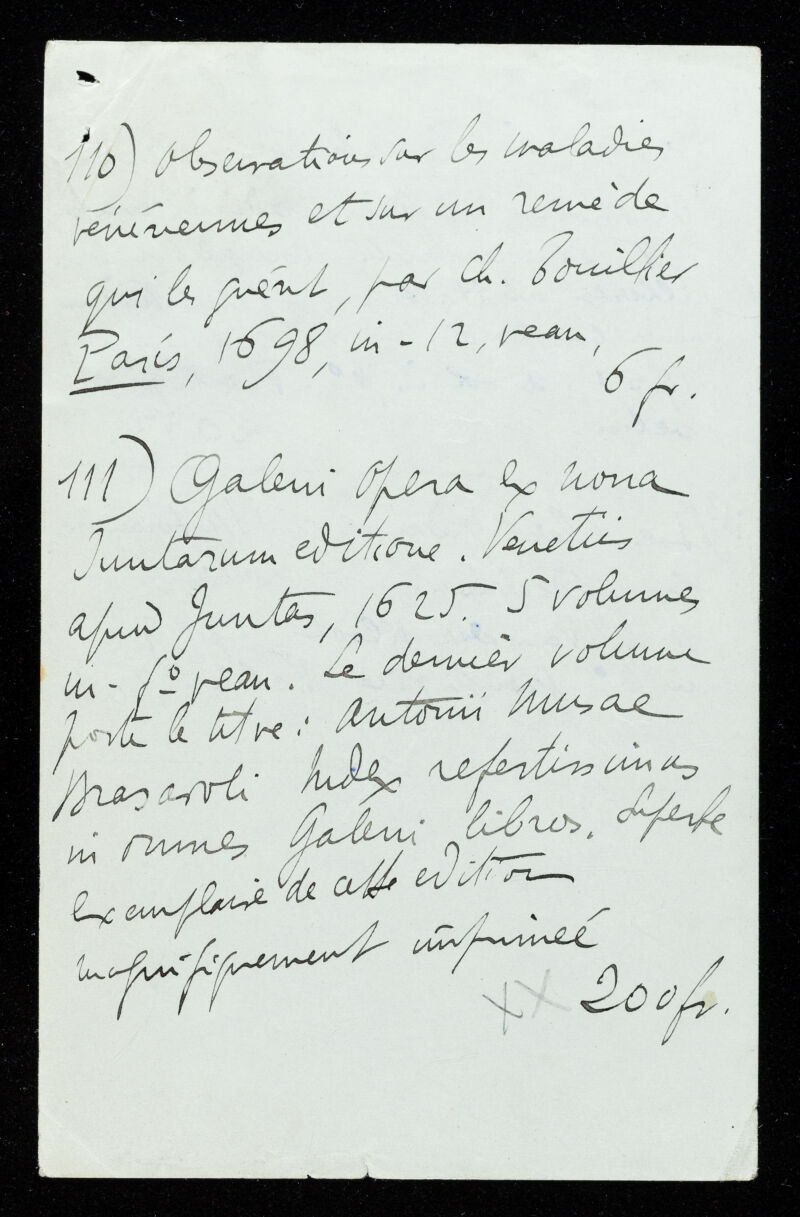 110) Observations sur les maladies
vénériennes et sur un remède
qui les guérit, par Ch. Bouillier
Paris, 1698, in-12, veau,
6 fr.
111) Galeni opera ex nona
Juntarum editione. Venetiis
apud Juntas, 1625. 5 volumes
in-fº veau. Le dernier volume
porte le titre: Antonii Musae
Brasavoli Index refertissimus
in omnes Galeni libros. Superbe
exemplaire de cette edition
magnifiquement imprimeé
XX 200 fr.